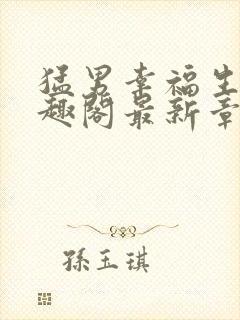 猛男幸福生
趣阁最新章
孫玉琪